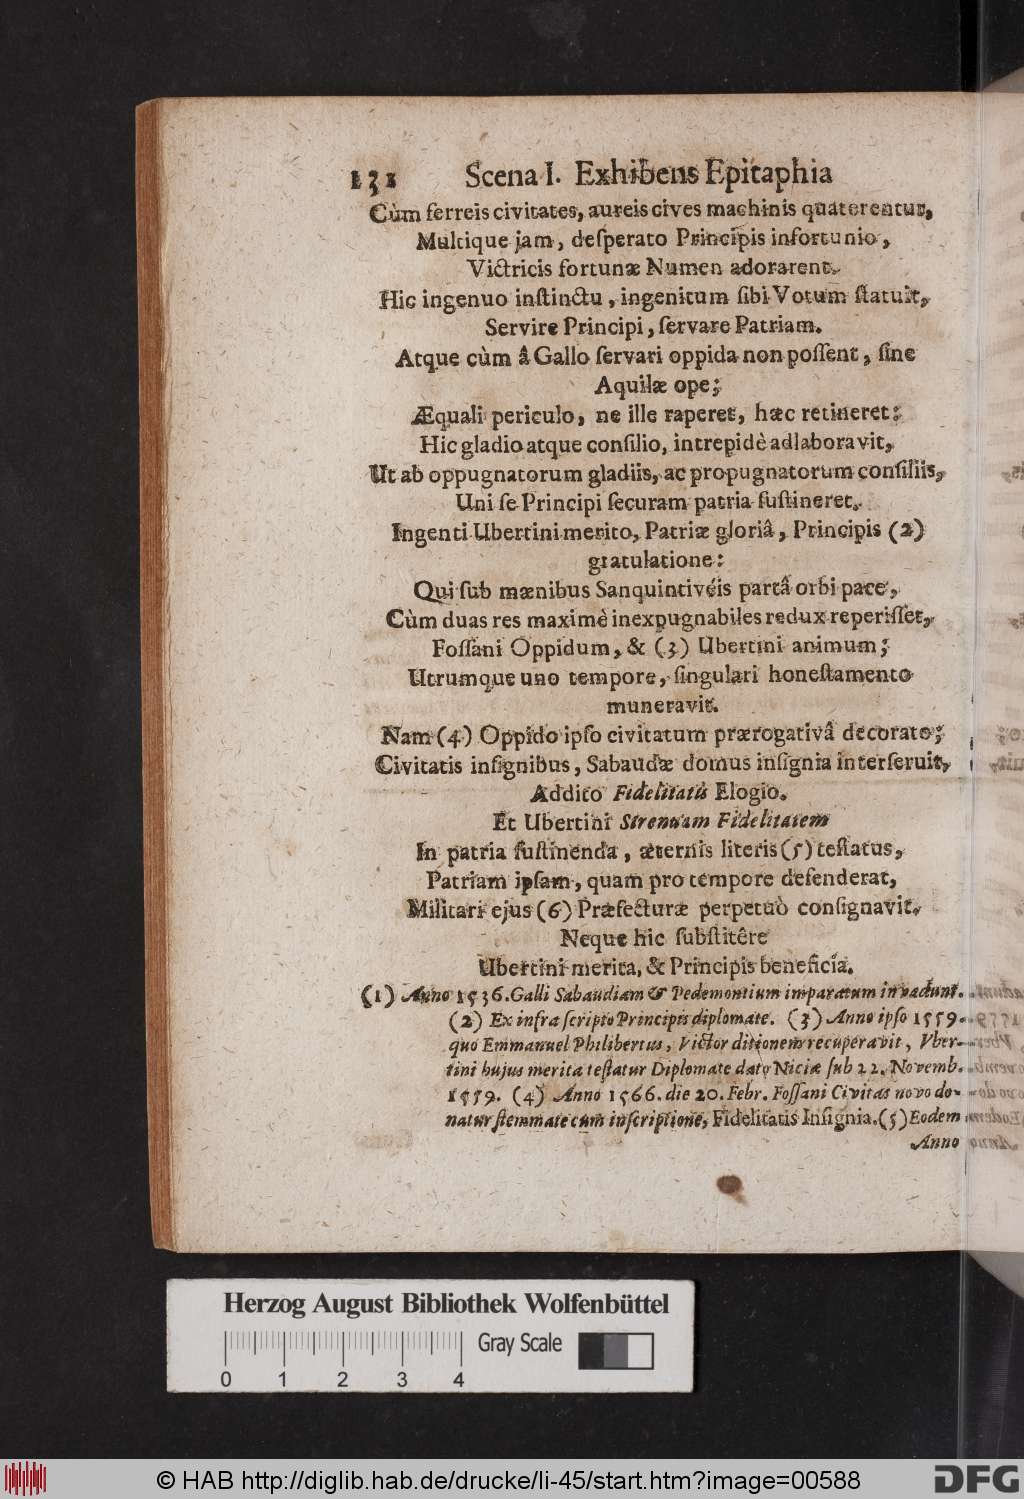 132 Scena I. Exhibens Epitaphia
Cùm ferreis civitates, aureis cives machinis quaterentur,
Multique jam, deſperato Principis infortunio,
Victricis fortunæ Numen adorarent.
Hic ingenuo inſtinctu, ingenitum ſibi Votum ſtatuit,
Servire Principi, ſervare Patriam.
Atque cùm â Gallo ſervari oppida non poſſent, ſine
Aquilæ ope;
Æquali periculo, ne ille raperet, hæc retineret:
Hic gladio atque conſilio, intrepidè adlaboravit,
Ut ab oppugnatorum gladiis, ac propugnatorum conſiliis,
Uni ſe Principi ſecuram patria ſuſtineret.
Ingenti Ubertini merito, Patriæ gloriâ, Principis (2)
gratulatione:
Qui ſub mænibus Sanquintivéis partâ orbi pace,
Cùm duas res maximè inexpugnabiles redux reperiſſet,
Foſſani Oppidum, & (3) Ubertini animum;
Utrumque uno tempore, ſingulari honeſtamento
muneravit.
Nam (4) Oppido ipſo civitatum prærogativâ decorato;
Civitatis inſignibus, Sabaudæ domus inſignia interſeruit,
Addito Fidelitatis Elogio.
Et Ubertini Strenuam Fidelitatem
In patria ſuſtinenda, æternis literis (5) teſtatus,
Patriam ipſam, quam pro tempore defenderat,
Militari ejus (6) Præfecturæ perpetuò conſignavit.
Neque hic ſubſtitêre
Ubertini merita, & Principis beneficia.
(1) Anno 1536. Galli Sabaudiam & Pedemontium imparatum invadunt.
(2) Ex infra ſcripto Principis diplomate. (3) Anno ipſo 1559.
quo Emmanuel Philibertus, Victor ditionem recuperavit, Vber-
tini hujus merita teſtatur Diplomate dato Niciæ ſub 22. Novemb.
1559. (4) Anno 1566. die 20. Febr. Foſſani Civitas novo do-
natur ſtemmate cum inſcriptione, Fidelitatis Inſignia. (5) Eodem
Anno
Herzog August Bibliothek Wolfenbüttel
Gray Scale
0 1 2 3 4
© HAB http://diglib.hab.de/drucke/li-45/start.htm?image=00588
DFG